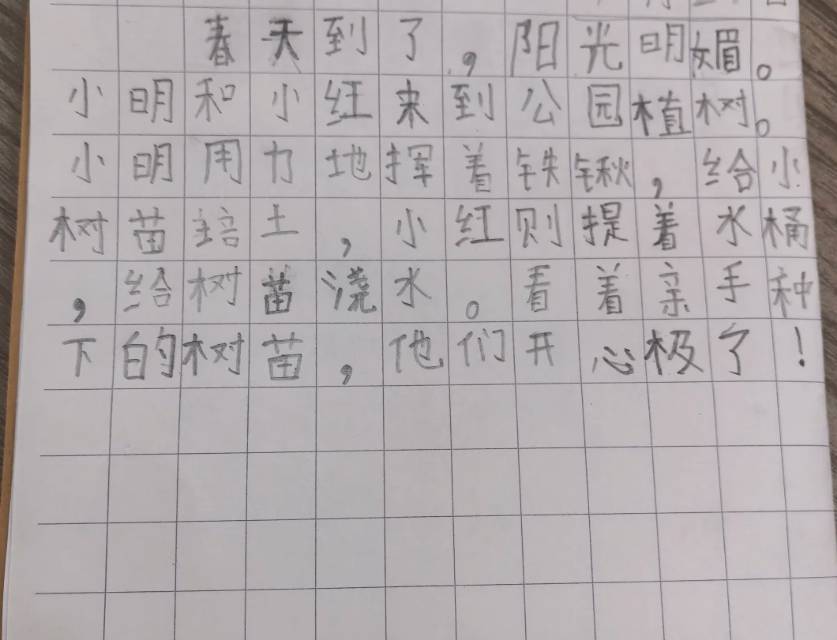 春天到了，阳光明媚。
小明和小红来到公园植树。
小明用力地挥着铁锹，给小
树苗培土，小红则提着水桶
，给树苗浇水。看着亲手种
下的树苗，他们开心极了！